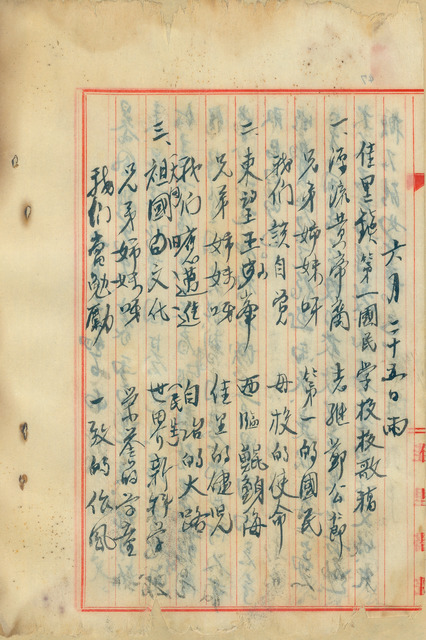 六月二十五日雨
佳里鎮第一國民學校校歌稿
一、源流黃帝裔 志繼鄭公節
兄弟姊妹呀 第一的國民
我們該自覺 母校的使命
二、東望玉山峯 西臨鯤鯓海
兄弟姊妹呀 佳里的健兒
我們應邁進 自治的大路
三、祖國固文化 世界新科學
兄弟姊妹呀 榮譽的學童
我們當勉勵 一致的作風